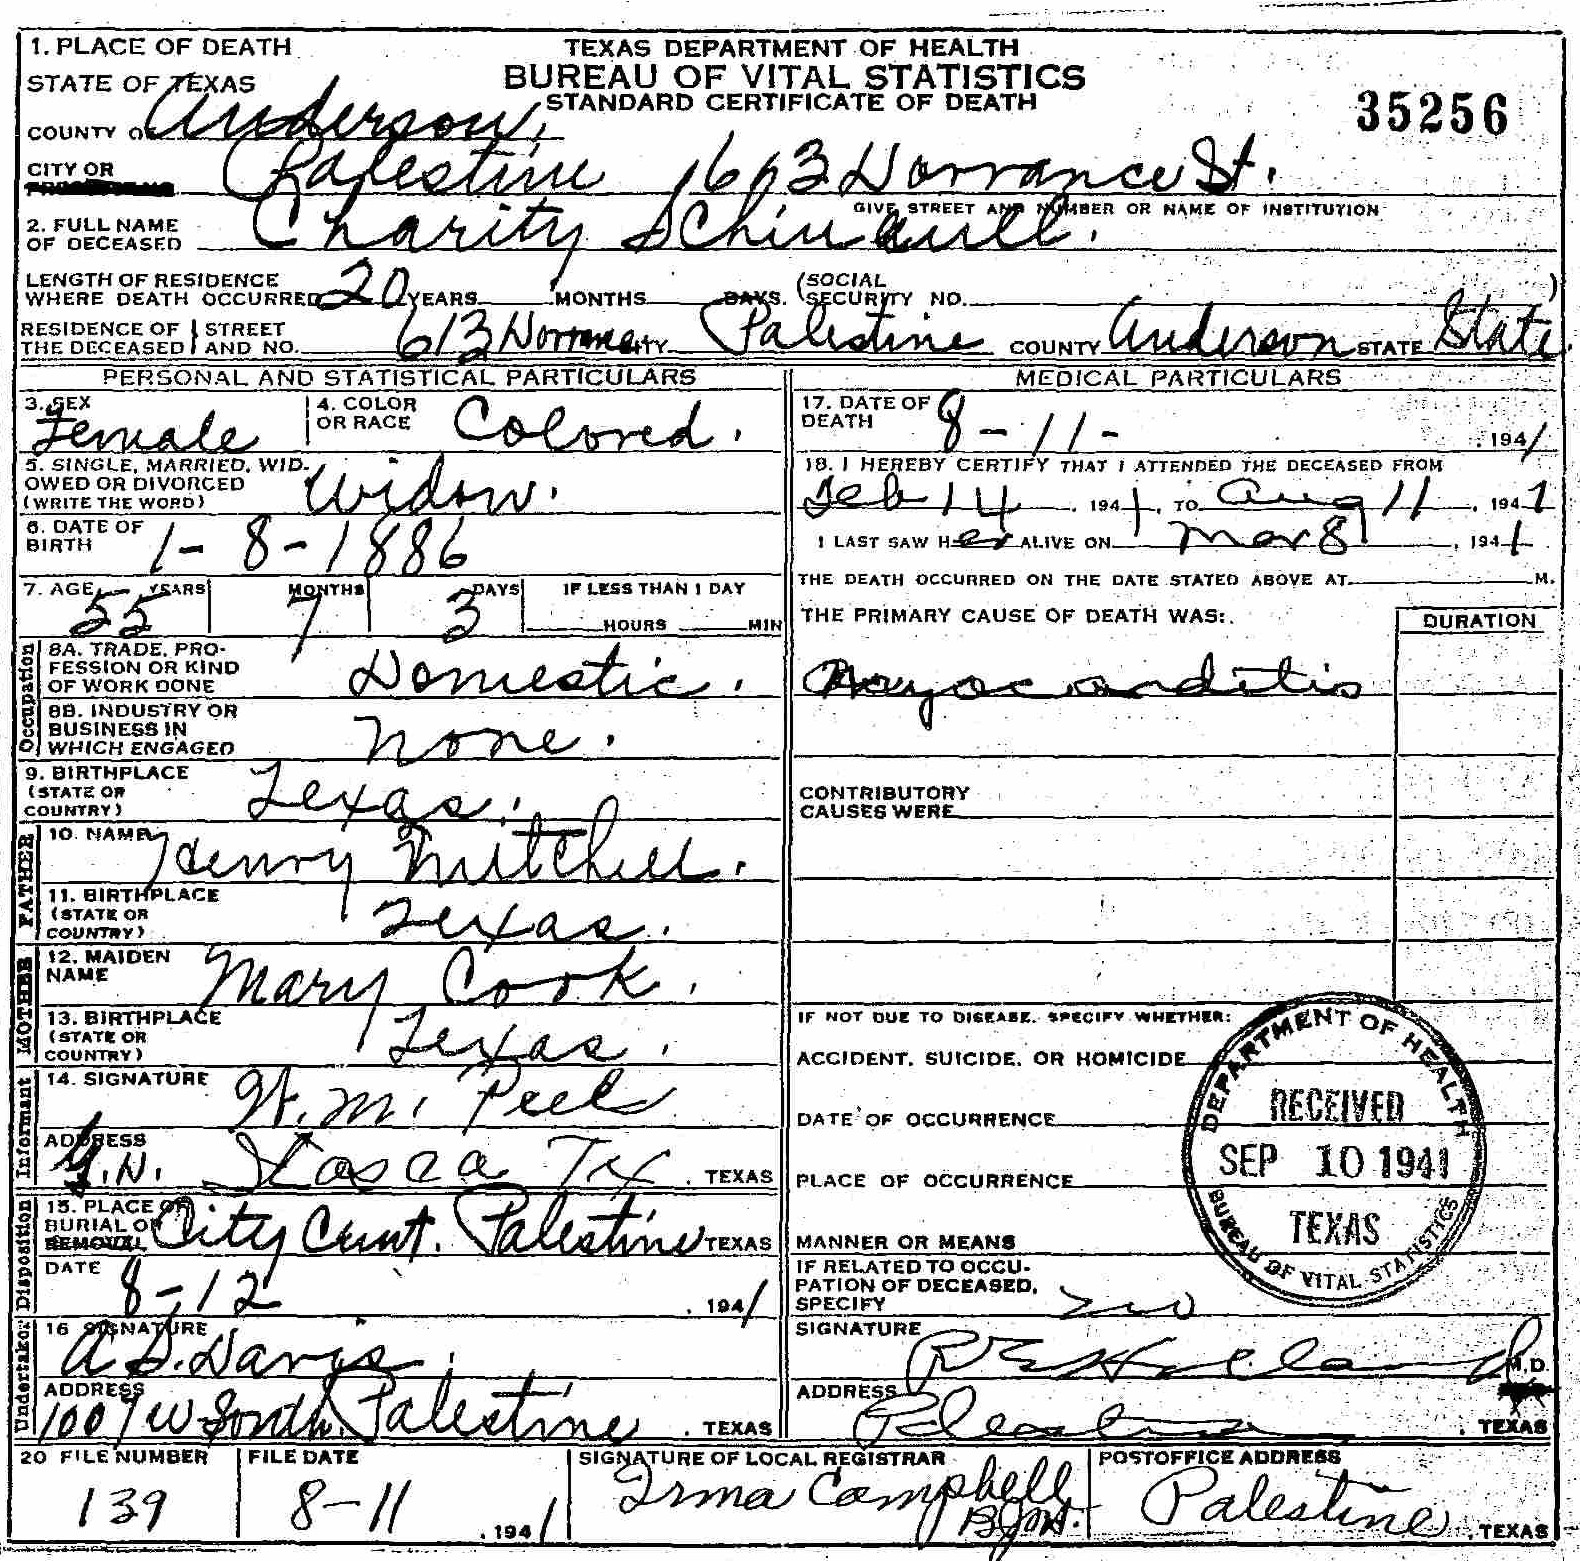 1. PLACE OF DEATH
TEXAS DEPARTMENT OF HEALTH
STATE OF TEXAS
BUREAU OF VITAL STATISTICS
STANDARD CERTIFICATE OF DEATH
35256
COUNTY OF Anderson,
CITY OR Palestine 613 Dorrance St.
GIVE STREET AND NUMBER OR NAME OF INSTITUTION
2. FULL NAME OF DECEASED Charity
LENGTH OF RESIDENCE WHERE DEATH OCCURRED 20 YEARS MONTHS DAYS. (SOCIAL SECURITY NO. )
RESIDENCE OF THE DECEASED STREET AND NO. 613 Dorrance CITY Palestine COUNTY Anderson STATE State
PERSONAL AND STATISTICAL PARTICULARS
3. SEX Female
4. COLOR OR RACE Colored.
5. SINGLE, MARRIED, WIDOWED OR DIVORCED (WRITE THE WORD) Widow.
6. DATE OF BIRTH 1-8-1886
7. AGE 55 YEARS 7 MONTHS 3 DAYS IF LESS THAN 1 DAY HOURS MIN
Occupation
8A. TRADE, PROFESSION OR KIND OF WORK DONE Domestic.
8B. INDUSTRY OR BUSINESS IN WHICH ENGAGED None.
9. BIRTHPLACE (STATE OR COUNTRY) Texas.
FATHER
10. NAME Henry Mitchell.
11. BIRTHPLACE (STATE OR COUNTRY) Texas.
MOTHER
12. MAIDEN NAME Mary Cook.
13. BIRTHPLACE (STATE OR COUNTRY) Texas.
Informant
14. SIGNATURE W. M. Peel
ADDRESS Itasca Tex. TEXAS
Disposition
15. PLACE OF BURIAL OR REMOVAL City Cemt. Palestine TEXAS
DATE 8-12, 1941
Undertaker
16 SIGNATURE A.D. Davis.
ADDRESS 1007 W South. Palestine, TEXAS
MEDICAL PARTICULARS
17. DATE OF DEATH 8-11-, 1941
18. I HEREBY CERTIFY THAT I ATTENDED THE DECEASED FROM
Feb 14, 1941, TO Aug 11, 1941
I LAST SAW Her ALIVE ON Mar 8, 1941
THE DEATH OCCURRED ON THE DATE STATED ABOVE AT M.
THE PRIMARY CAUSE OF DEATH WAS:
DURATION
Myocarditis
CONTRIBUTORY CAUSES WERE
IF NOT DUE TO DISEASE, SPECIFY WHETHER:
ACCIDENT, SUICIDE, OR HOMICIDE
DATE OF OCCURRENCE
PLACE OF OCCURRENCE
MANNER OR MEANS
IF RELATED TO OCCUPATION OF DECEASED, SPECIFY no
SIGNATURE Holland M.D.
ADDRESS Palestine, TEXAS
DEPARTMENT OF HEALTH
RECEIVED
SEP 10 1941
TEXAS
BUREAU OF VITAL STATISTICS
20 FILE NUMBER 139
FILE DATE 8-11, 1941
SIGNATURE OF LOCAL REGISTRAR Irma Campbell
POSTOFFICE ADDRESS Palestine, TEXAS